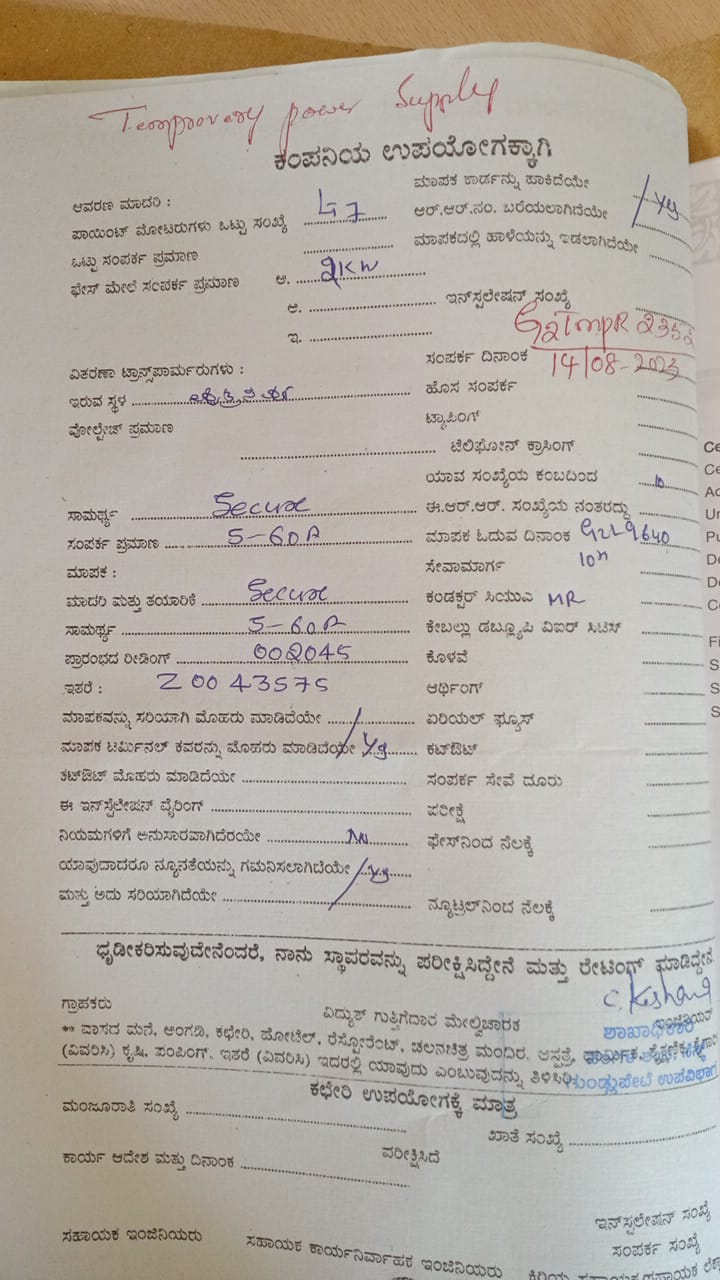 Temprovery power Supply
ಕಂಪನಿಯ ಉಪಯೋಗಕ್ಕಾಗಿ
ಮಾಪಕ ಕಾರ್ಡನ್ನು ಹಾಕಿದೆಯೇ
ಆವರಣ ಮಾದರಿ :
ಪಾಯಿಂಟ್ ಮೋಟರುಗಳು ಒಟ್ಟು ಸಂಖ್ಯೆ ಆರ್.ಆರ್.ನಂ. ಬರೆಯಲಾಗಿದೆಯೇ Yes
ಒಟ್ಟು ಸಂಪರ್ಕ ಪ್ರಮಾಣ ಮಾಪಕದಲ್ಲಿ ಹಾಳೆಯನ್ನು ಇಡಲಾಗಿದೆಯೇ
ಫೇಸ್ ಮೇಲೆ ಸಂಪರ್ಕ ಪ್ರಮಾಣ ಅ. 2KW
ಆ. ಇನ್‌ಸ್ಟಲೇಷನ್ ಸಂಖ್ಯೆ
ಇ. G2TmpR 2352
ಸಂಪರ್ಕ ದಿನಾಂಕ 14/08-2023
ವಿತರಣಾ ಟ್ರಾನ್ಸ್‌ಪಾರ್ಮರುಗಳು :
ಇರುವ ಸ್ಥಳ ಹೊಸ ಸಂಪರ್ಕ
ವೋಲ್ಟೇಜ್ ಪ್ರಮಾಣ ಟ್ಯಾಪಿಂಗ್
ಟೆಲಿಫೋನ್ ಕ್ರಾಸಿಂಗ್
ಯಾವ ಸಂಖ್ಯೆಯ ಕಂಬದಿಂದ
ಸಾಮರ್ಥ್ಯ Secure ಈ.ಆರ್.ಆರ್. ಸಂಖ್ಯೆಯ ನಂತರದ್ದು
ಸಂಪರ್ಕ ಪ್ರಮಾಣ 5-60A ಮಾಪಕ ಓದುವ ದಿನಾಂಕ G2L9640
ಮಾಪಕ : ಸೇವಾಮಾರ್ಗ 10m
ಮಾದರಿ ಮತ್ತು ತಯಾರಿಕೆ Secure ಕಂಡಕ್ಟರ್ ಸಿಯುಎ MR
ಸಾಮರ್ಥ್ಯ 5-60A ಕೇಬಲ್ಲು ಡಬ್ಲ್ಯೂಪಿ ವಿಐರ್ ಸಿಟಿಸ್
ಪ್ರಾರಂಭದ ರೀಡಿಂಗ್ 002045 ಕೊಳವೆ
ಇತರೆ : Z0043575 ಆರ್ಥಿಂಗ್
ಮಾಪಕವನ್ನು ಸರಿಯಾಗಿ ಮೊಹರು ಮಾಡಿದೆಯೇ ಏರಿಯಲ್ ಫ್ಯೂಸ್
ಮಾಪಕ ಟರ್ಮಿನಲ್ ಕವರನ್ನು ಮೊಹರು ಮಾಡಿದೆಯೇ Yes ಕಟ್‌ಔಟ್
ಕಟ್‌ಔಟ್ ಮೊಹರು ಮಾಡಿದೆಯೇ ಸಂಪರ್ಕ ಸೇವೆ ದೂರು
ಈ ಇನ್‌ಸ್ಟೆಲೇಷನ್ ವೈರಿಂಗ್ ಪರೀಕ್ಷೆ
ನಿಯಮಗಳಿಗೆ ಅನುಸಾರವಾಗಿದೆರಯೇ ಫೇಸ್‌ನಿಂದ ನೆಲಕ್ಕೆ
ಯಾವುದಾದರೂ ನ್ಯೂನತೆಯನ್ನು ಗಮನಿಸಲಾಗಿದೆಯೇ Yes
ಮತ್ತು ಅದು ಸರಿಯಾಗಿದೆಯೇ ನ್ಯೂಟ್ರಲ್‌ನಿಂದ ನೆಲಕ್ಕೆ
ಧೃಡೀಕರಿಸುವುದೇನೆಂದರೆ, ನಾನು ಸ್ಥಾವರವನ್ನು ಪರೀಕ್ಷಿಸಿದ್ದೇನೆ ಮತ್ತು ರೇಟಿಂಗ್ ಮಾಡಿದ್ದೇನೆ
ಗ್ರಾಹಕರು ವಿದ್ಯುತ್ ಗುತ್ತಿಗೆದಾರ ಮೇಲ್ವಿಚಾರಕ ಇಂಜಿನಿಯರ್
ಶಾಖಾಧಿಕಾರಿ
** ವಾಸದ ಮನೆ, ಅಂಗಡಿ, ಕಛೇರಿ, ಹೋಟೆಲ್, ರೆಸ್ಟೋರೆಂಟ್, ಚಲನಚಿತ್ರ ಮಂದಿರ, ಆಸ್ಪತ್ರೆ, ಧಾರ್ಮಿಕ,
(ವಿವರಿಸಿ) ಕೃಷಿ, ಪಂಪಿಂಗ್, ಇತರೆ (ವಿವರಿಸಿ) ಇದರಲ್ಲಿ ಯಾವುದು ಎಂಬುವುದನ್ನು ತಿಳಿಸಿರಿ
ಗುಂಡ್ಲುಪೇಟೆ ಉಪವಿಭಾಗ
ಕಛೇರಿ ಉಪಯೋಗಕ್ಕೆ ಮಾತ್ರ
ಮಂಜೂರಾತಿ ಸಂಖ್ಯೆ ಖಾತೆ ಸಂಖ್ಯೆ
ಕಾರ್ಯ ಆದೇಶ ಮತ್ತು ದಿನಾಂಕ ಪರೀಕ್ಷಿಸಿದೆ
ಇನ್‌ಸ್ಟಲೇಷನ್ ಸಂಖ್ಯೆ
ಸಂಪರ್ಕ ಸಂಖ್ಯೆ
ಸಹಾಯಕ ಇಂಜಿನಿಯರು ಸಹಾಯಕ ಕಾರ್ಯನಿರ್ವಾಹಕ ಇಂಜಿನಿಯರು